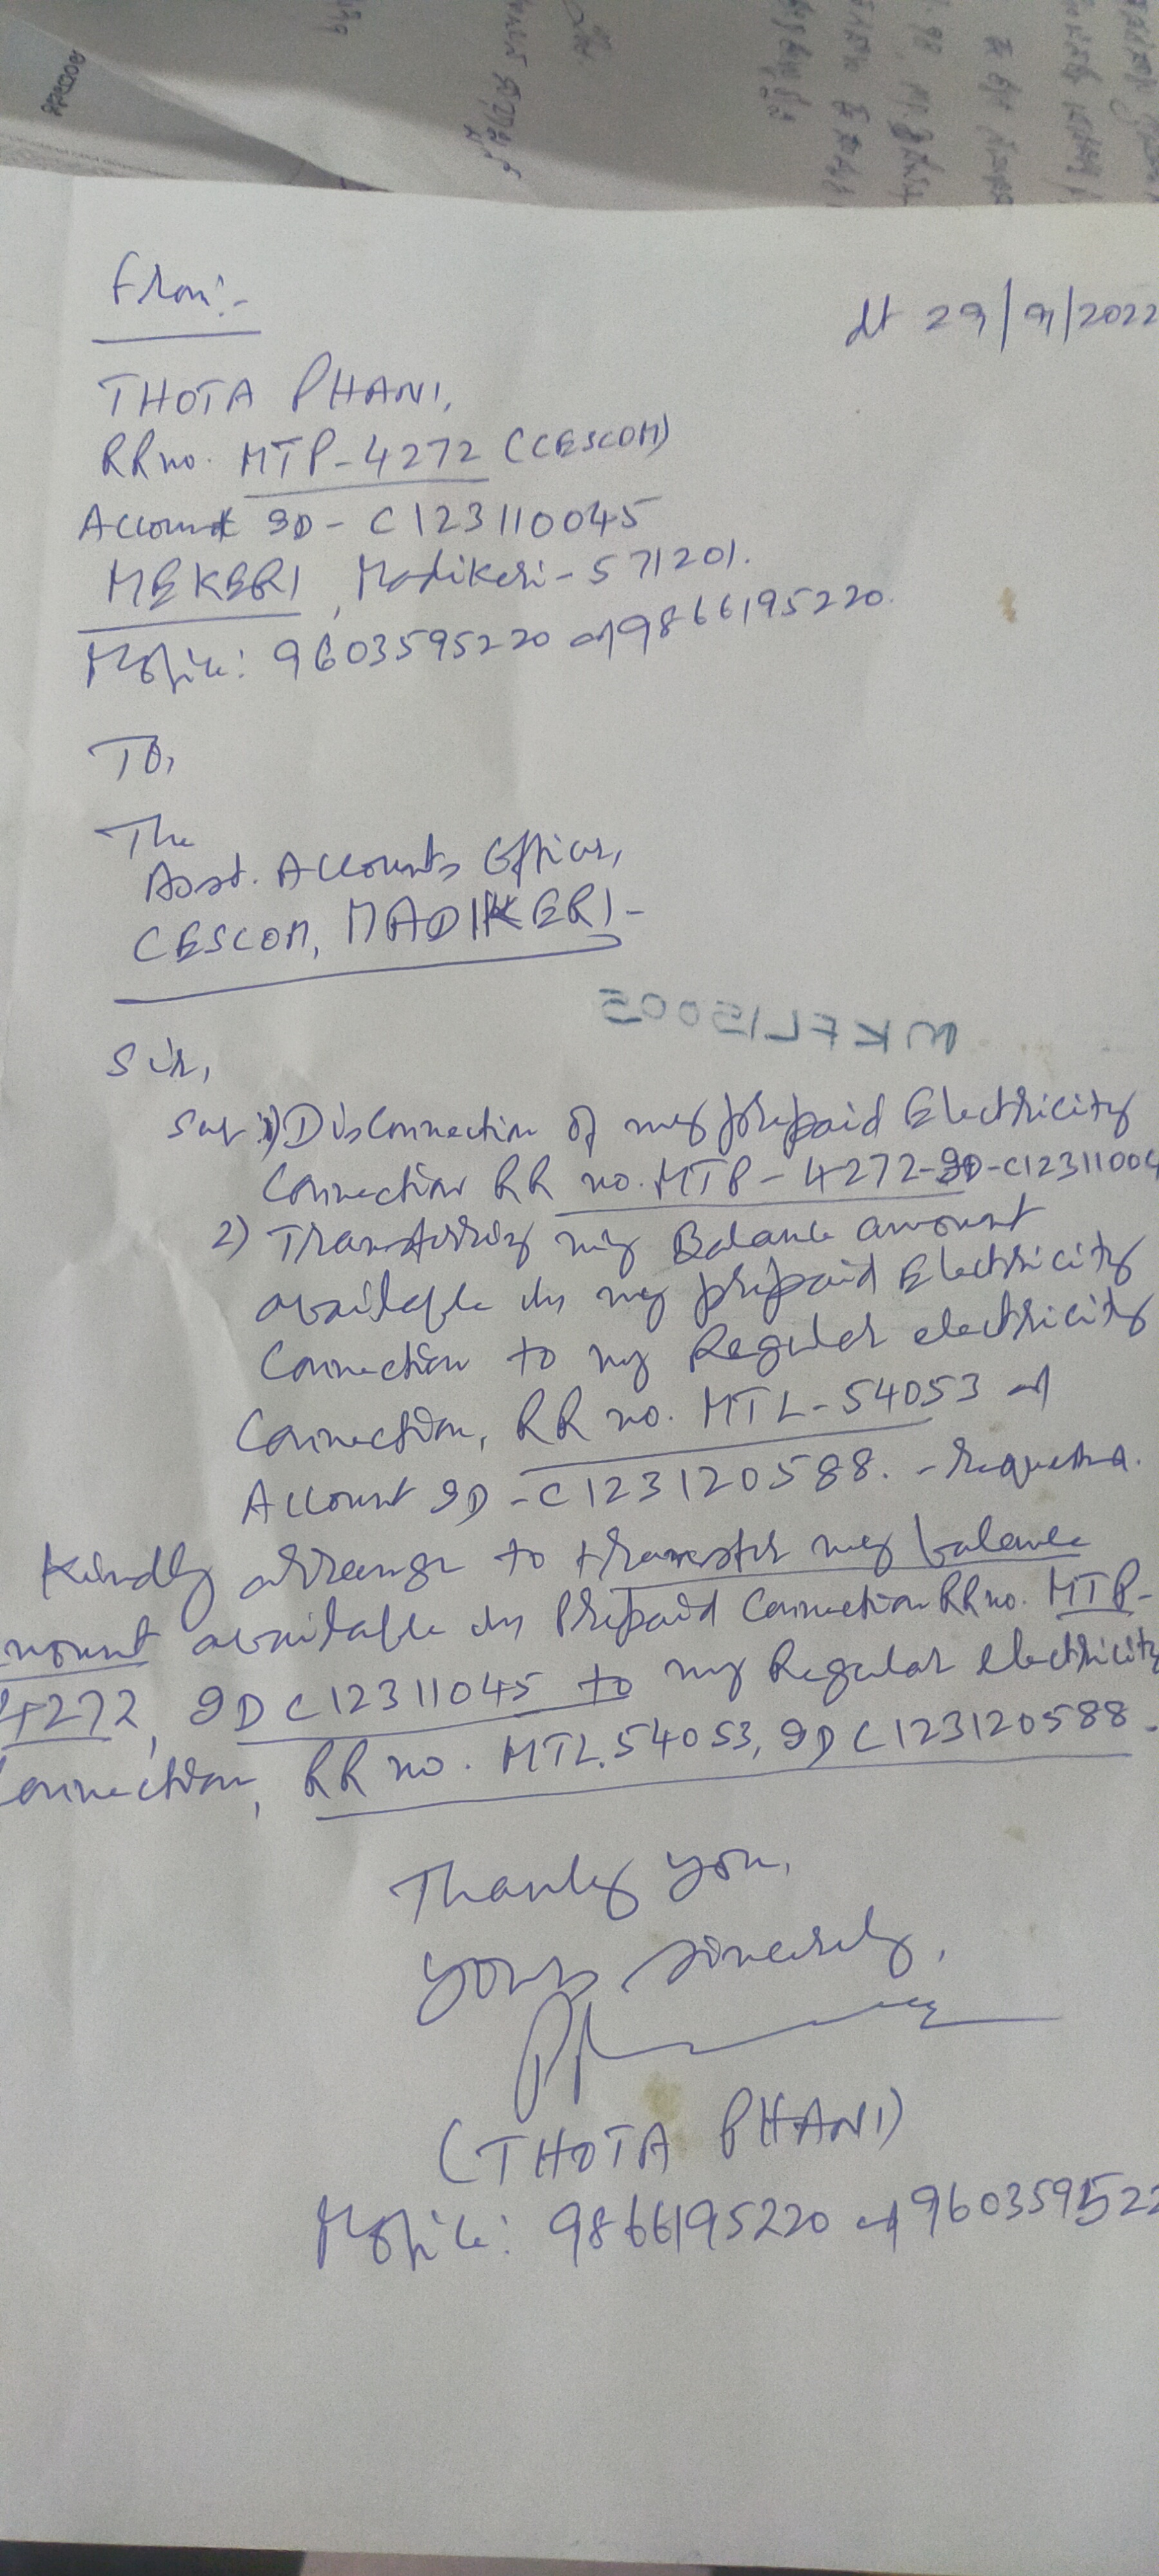 From:-
dt 29/9/2022
THOTA PHANI,
RR no. MTP-4272 (CESCOM)
Account ID - C123110045
MEKERI, Madikeri - 571201.
Mobile: 9603595220 and 9866195220.
To,
The
Asst. Accounts Officer,
CESCOM, MADIKERI-
MKFL15005
Sir,
Sub: 1) Disconnection of my prepaid Electricity
Connection RR no. MTP-4272-ID-C12311004
2) Transferring my Balance amount
available in my prepaid Electricity
Connection to my Regular electricity
Connection, RR no. MTL-54053 and
Account ID - C123120588. - requested.
Kindly arrange to transfer my balance
mount available in Prepaid Connection RR no. MTP-
4272, ID C12311045 to my Regular electricity
onnection, RR no. MTL.54053, ID C123120588.
Thanking you,
yours sincerely,
(THOTA PHANI)
Mobile: 9866195220 and 960359522